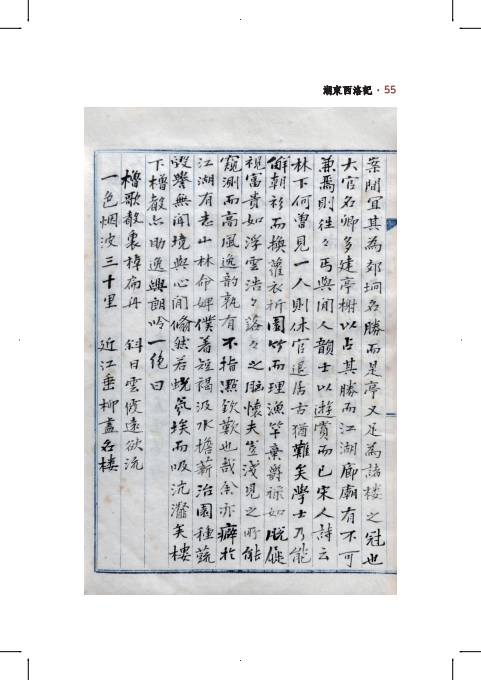 湖東西洛記 · 55
案間宜其為郊坰名勝而是亭又足為諸樓之冠也
大官名卿多建亭榭以占其勝而江湖廊廟有不可
兼焉則徃々丐與閒人韻士以遊賞而已宋人詩云
林下何曾見一人則休官退居古猶難矣學士乃能
解朝衫而換蘿衣祈園竹而理漁竿棄爵祿如脫屣
視富貴如浮雲浩々落々之胸懷夫豈淺見之所能
窺測而高風逸韻孰有不指點欽歎也哉余亦癖於
江湖有志山林命婢僕著短褐汲水擔薪治園種蔬
毀譽無聞境與心閒翛然若蛻氛埃而吸沆瀣矣樓
下櫓聲亦助逸興朗吟一絕曰
櫓歌聲裏棹扁舟　斜日雲霞遠欲流
一色烟波三十里　近江垂柳盡名樓